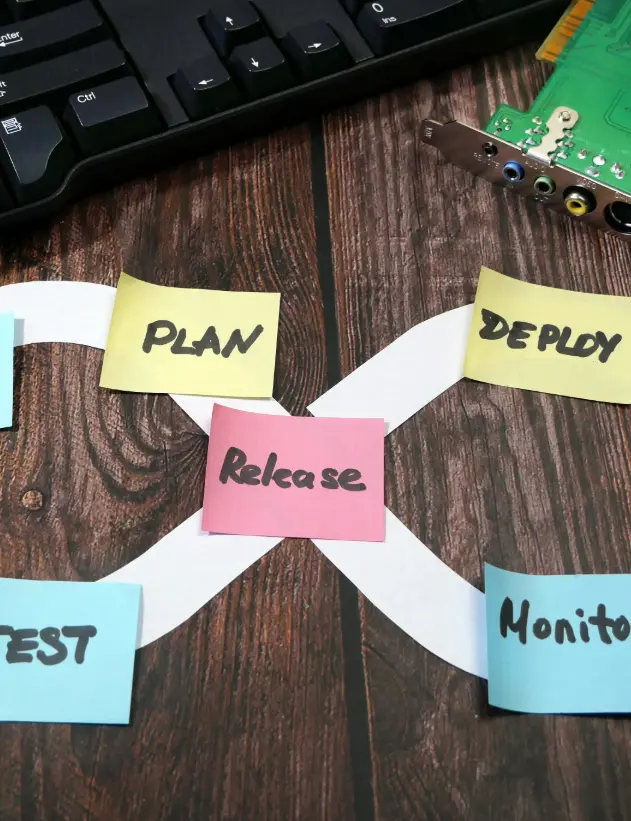 Enter
Ctrl
0
Ins
PLAN
DEPLOY
Release
TEST
Monito